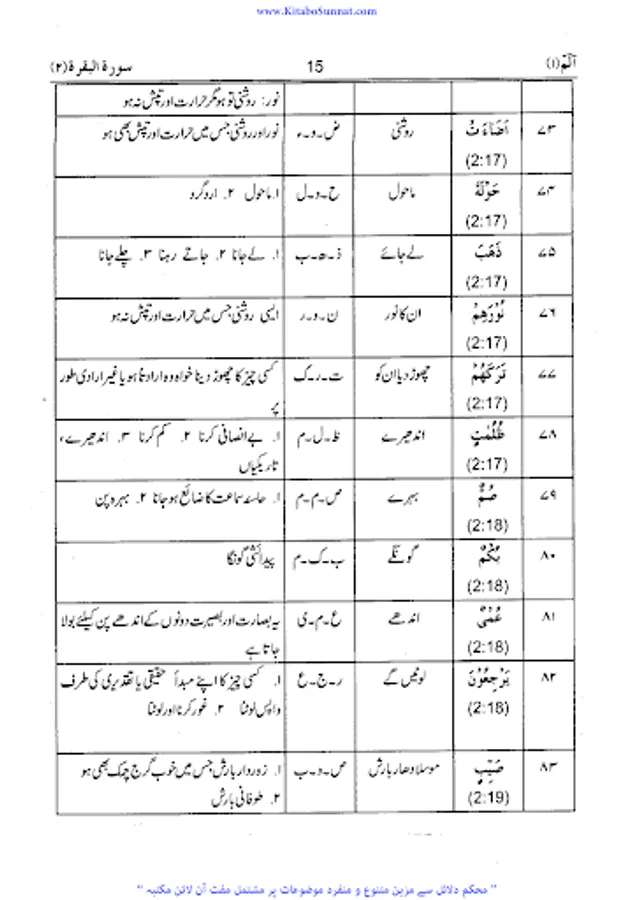 www.KitaboSunnat.com
آلٓمّٓ (۱) 15 سورة البقرة (۲)
نور: روشنی تو ہو مگر حرارت اور تپش نہ ہو
۷۳ اَضَآءَتْ روشنی ض-و-ء نور اور روشنی جس میں حرارت اور تپش بھی ہو
(2:17)
۷۴ حَوْلَهٗ ماحول ح-و-ل ۱. ماحول ۲. اردگرد
(2:17)
۷۵ ذَهَبَ لے جائے ذ-ھ-ب ۱. لے جانا ۲. جاتے رہنا ۳. چلے جانا
(2:17)
۷۶ نُوْرِهِمْ ان کا نور ن-و-ر ایسی روشنی جس میں حرارت اور تپش نہ ہو
(2:17)
۷۷ تَرَكَهُمْ چھوڑ دیا ان کو ت-ر-ک کسی چیز کا چھوڑ دینا خواہ وہ ارادتا ہو یا غیر ارادی طور
(2:17) پر
۷۸ ظُلُمٰتٍ اندھیرے ظ-ل-م ۱. بے انصافی کرنا ۲. کم کرنا ۳. اندھیرے،
(2:17) تاریکیاں
۷۹ صُمٌّ بہرے ص-م-م ۱. حاسہ سماعت کا ضائع ہو جانا ۲. بہرہ پن
(2:18)
۸۰ بُكْمٌ گونگے ب-ک-م پیدائشی گونگا
(2:18)
۸۱ عُمْیٌ اندھے ع-م-ی یہ بصارت اور بصیرت دونوں کے اندھے پن کیلئے بولا
(2:18) جاتا ہے
۸۲ يَرْجِعُوْنَ لوٹیں گے ر-ج-ع ۱. کسی چیز کا اپنے مبدأ حقیقی یا تقدیری کی طرف
(2:18) واپس لوٹنا ۲. غور کرنا اور لوٹنا
۸۳ صَيِّبٍ موسلا دھار بارش ص-و-ب ۱. زوردار بارش جس میں خوب گرج چمک بھی ہو
(2:19) ۲. طوفانی بارش
" محکم دلائل سے مزین متنوع و منفرد موضوعات پر مشتمل مفت آن لائن مکتبہ "